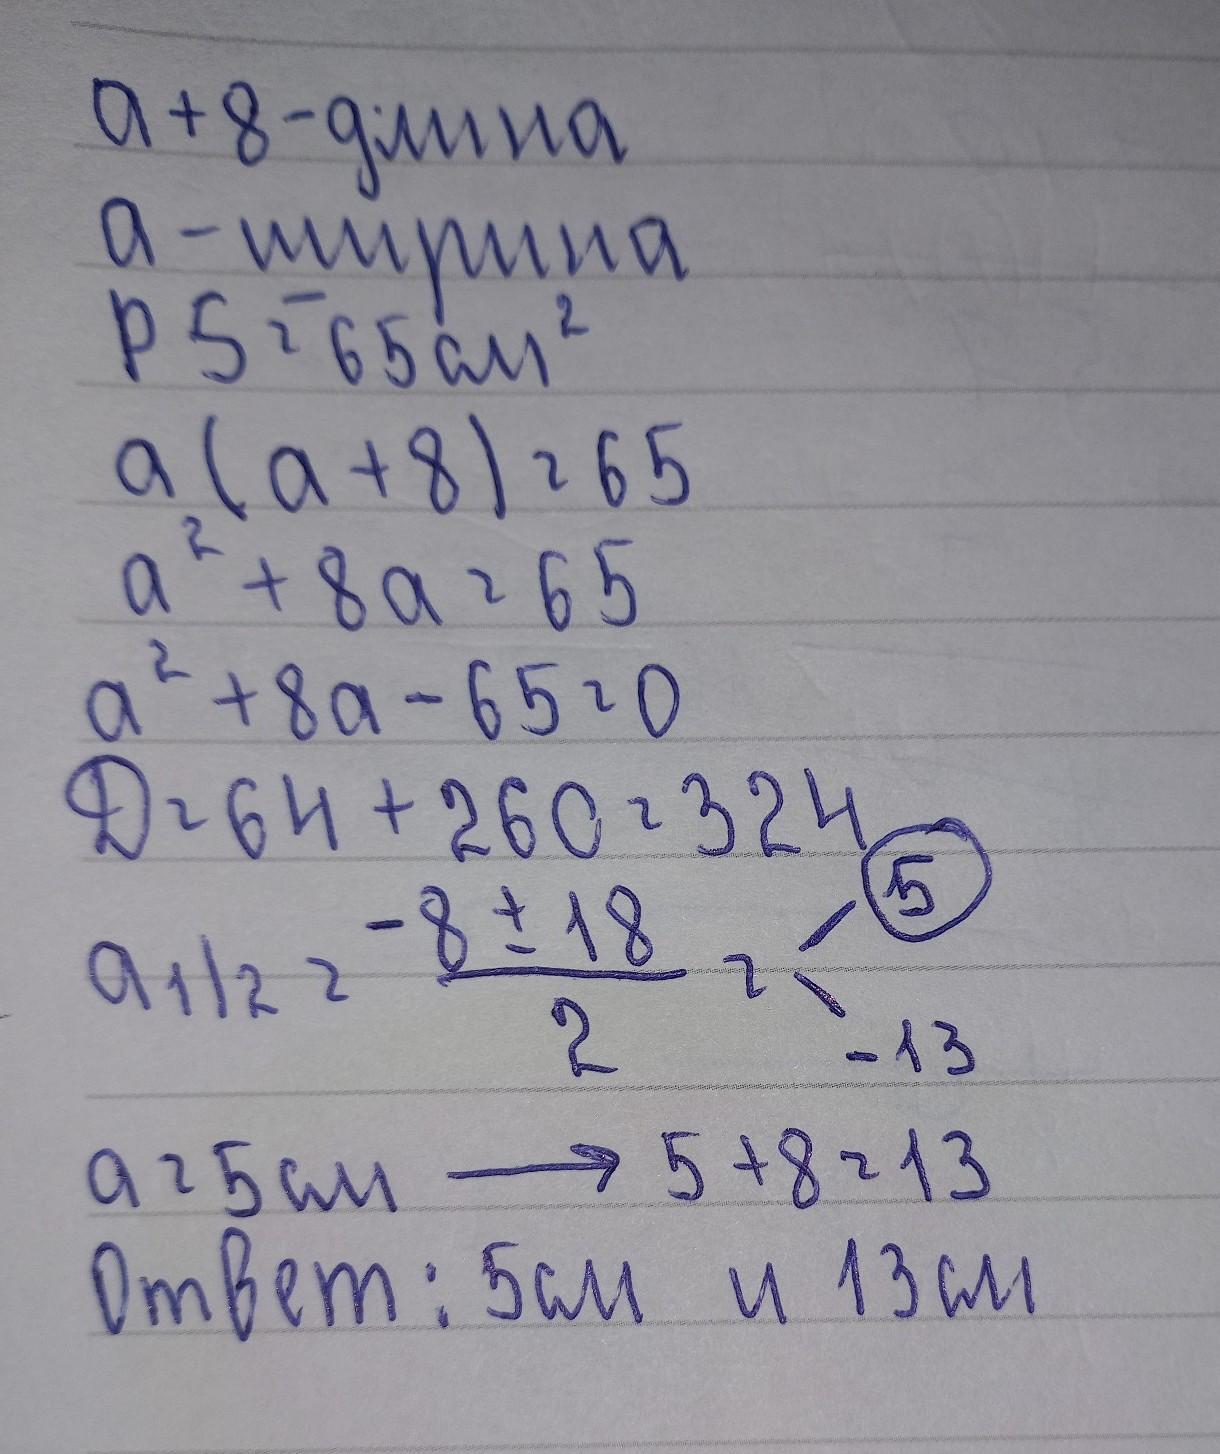 a+8-длина
a-ширина
P S=65см²
a(a+8)=65
a²+8a=65
a²+8a-65=0
Д=64+260=324
a1/2 = (-8±18)/2 = 5
-13
a=5см → 5+8=13
Ответ: 5см и 13см